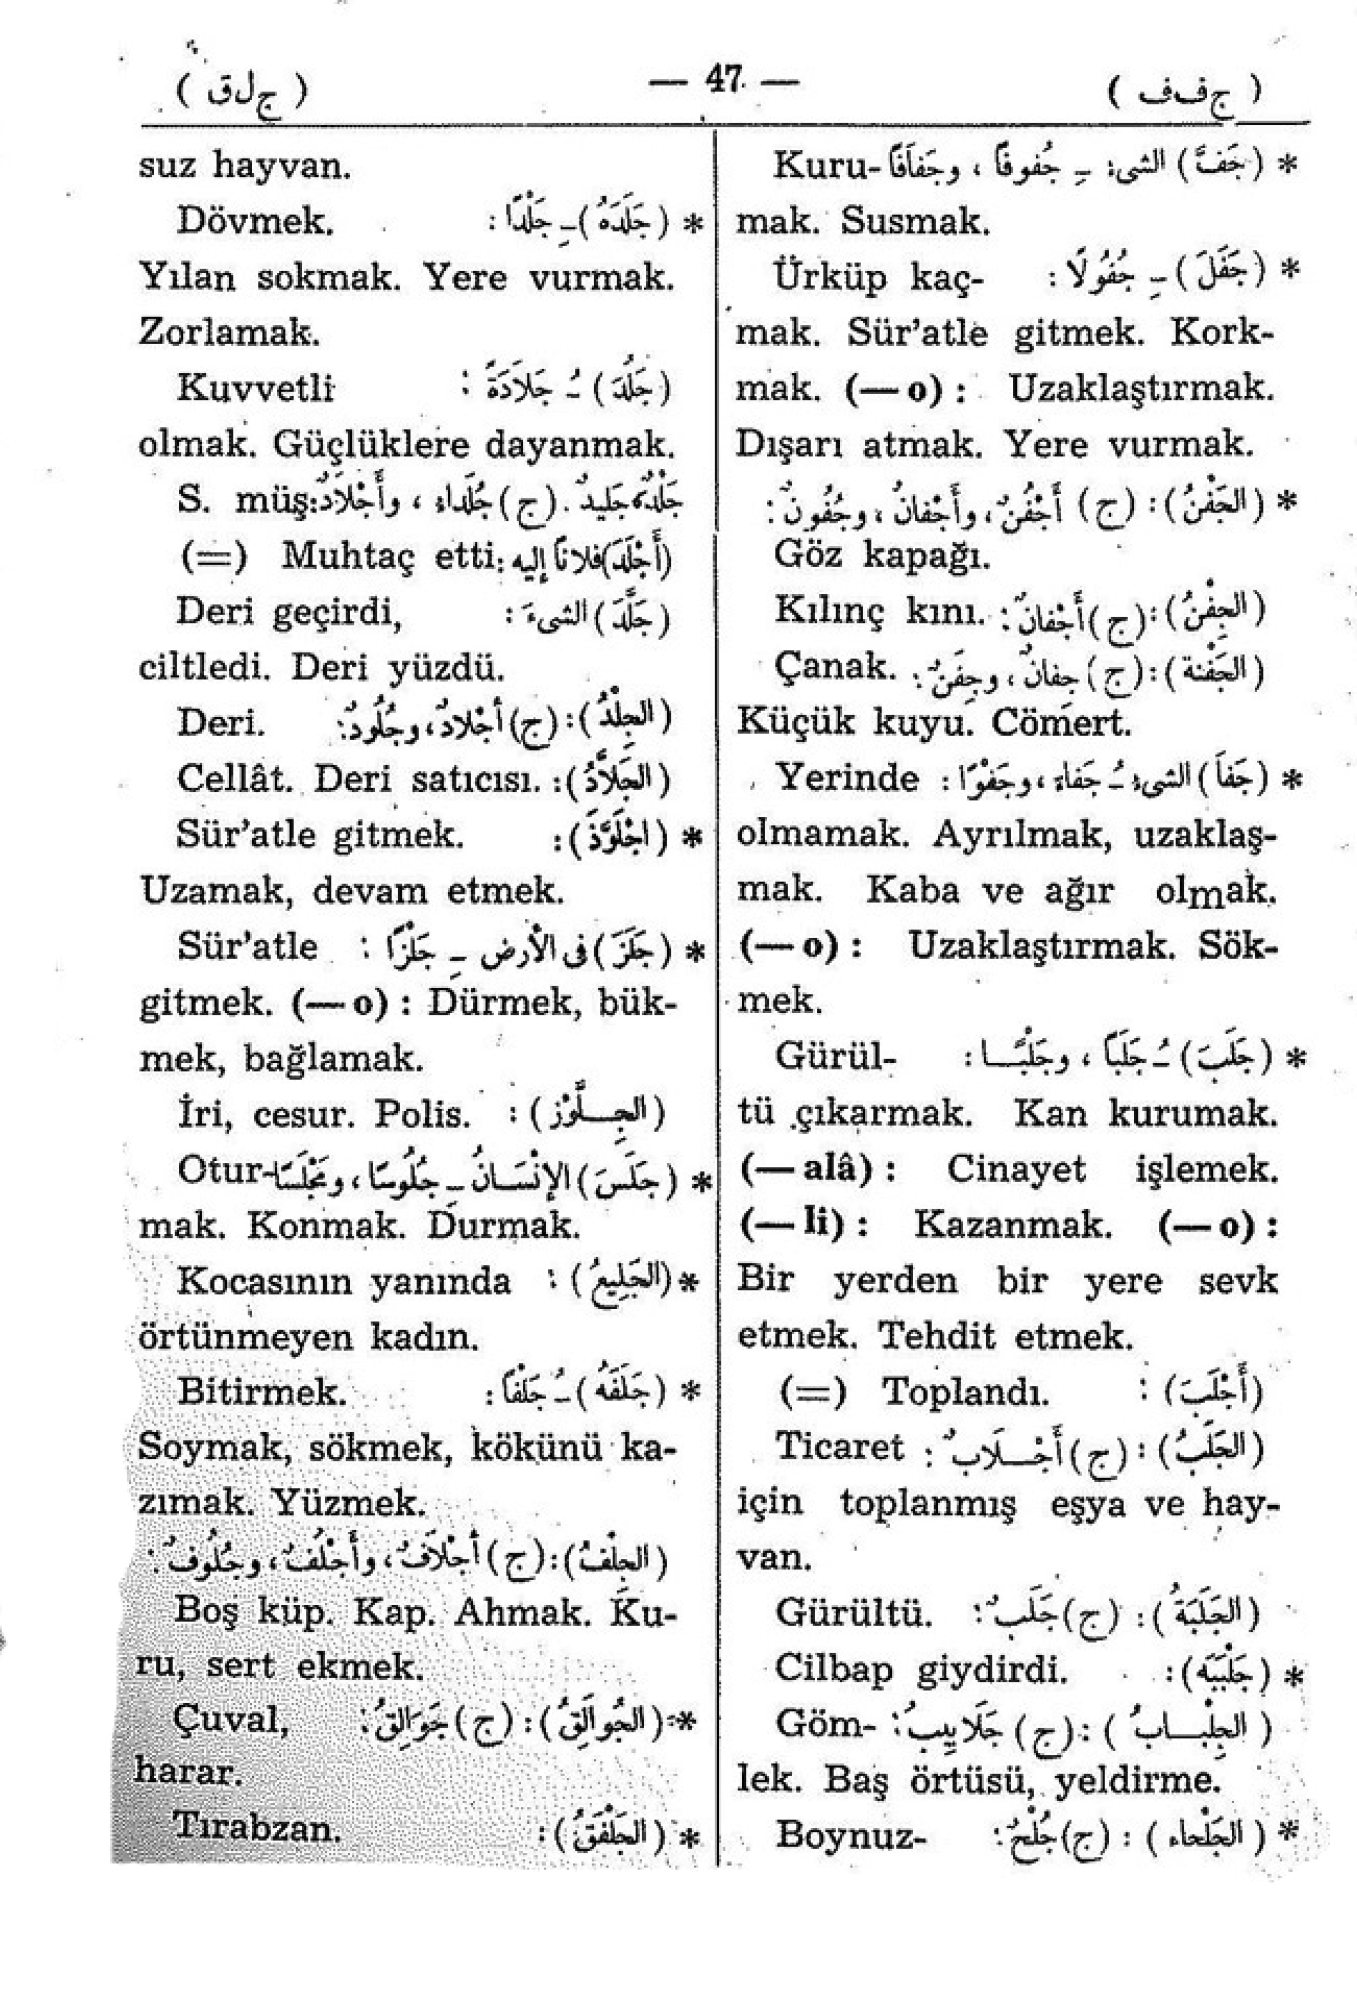 ( ج ف ف )
— 47 —
( ج ل ق )
* (جَفَّ) الشى‌ءُ ـِ جُفوفاً ، وجَفافاً Kuru-
mak. Susmak.
* (جَفَلَ) ـِ جُفُولًا : Ürküp kaç-
mak. Sür'atle gitmek. Kork-
mak. (— o) : Uzaklaştırmak.
Dışarı atmak. Yere vurmak.
* (الجَفْنُ) : (ج) أَجْفُنٌ، وأَجْفانٌ ، وجُفُونٌ :
Göz kapağı.
(الجِفْنُ) : (ج) أَجْفانٌ : Kılınç kını.
(الجَفْنة) : (ج) جِفانٌ ، وجِفَنٌ : Çanak.
Küçük kuyu. Cömert.
* (جَفاَ) الشى‌ءُ ـُ جَفاءً ، وجَفْوًا : Yerinde
olmamak. Ayrılmak, uzaklaş-
mak. Kaba ve ağır olmak.
(— o) : Uzaklaştırmak. Sök-
mek.
* (جَلَبَ) ـُ جَلَباً ، وجَلْبًا : Gürül-
tü çıkarmak. Kan kurumak.
(— alâ) : Cinayet işlemek.
(— li) : Kazanmak. (— o) :
Bir yerden bir yere sevk
etmek. Tehdit etmek.
(أَجْلَبَ) : (=) Toplandı.
(الجَلَبُ) : (ج) أَجْلَابٌ : Ticaret
için toplanmış eşya ve hay-
van.
(الجَلَبَةُ) : (ج) جَلَبٌ : Gürültü.
* (جَلْبَبَه) : Cilbap giydirdi.
(الجِلْبابُ) : (ج) جَلَابِيبُ : Göm-
lek. Baş örtüsü, yeldirme.
* (الجَلْحاء) : (ج) جُلْحٌ : Boynuz-
suz hayvan.
* (جَلَدَهُ) ـِ جَلْدًا : Dövmek.
Yılan sokmak. Yere vurmak.
Zorlamak.
(جَلُدَ) ـُ جَلَادَةً : Kuvvetli
olmak. Güçlüklere dayanmak.
S. müş: جَلْدٌ، جَليدٌ . (ج) جُلَداء ، وأَجْلَادٌ
(أَجْلَدَ) فلاناً إليه : (=) Muhtaç etti
(جَلَّدَ) الشى‌ءَ : Deri geçirdi,
ciltledi. Deri yüzdü.
(الجِلْدُ) : (ج) أَجْلادٌ، وجُلُودٌ : Deri.
(الجَلاَّدُ) : Cellât. Deri satıcısı.
* (اجْلَوَّذَ) : Sür'atle gitmek.
Uzamak, devam etmek.
* (جَلَزَ) فى الأرض ـِ جَلْزًا : Sür'atle
gitmek. (— o) : Dürmek, bük-
mek, bağlamak.
(الجِلَّوْز) : İri, cesur. Polis.
* (جَلَسَ) الإنْسَانُ ـِ جُلُوسًا ، ومَجْلَسًا Otur-
mak. Konmak. Durmak.
* (الجَلِيعُ) : Kocasının yanında
örtünmeyen kadın.
* (جَلَفَهُ) ـُ جَلْفاً : Bitirmek.
Soymak, sökmek, kökünü ka-
zımak. Yüzmek.
(الجِلْفُ) : (ج) أَجْلاَفٌ، وأَجْلُفٌ ، وجُلُوفٌ :
Boş küp. Kap. Ahmak. Ku-
ru, sert ekmek.
* (الجُوالِقُ) : (ج) جَوَالِقُ : Çuval,
harar.
* (الجَلْفَقُ) : Tırabzan.